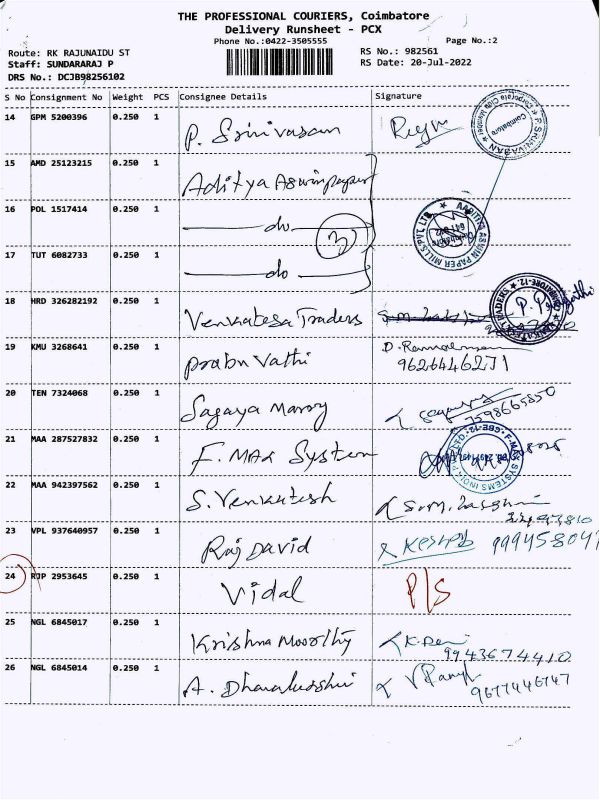 THE PROFESSIONAL COURIERS, Coimbatore
Delivery Runsheet - PCX
Phone No.:0422-3505555
Page No.:2
Route: RK RAJUNAIDU ST
RS No.: 982561
Staff: SUNDARARAJ P
RS Date: 20-Jul-2022
DRS No.: DCJB98256102
S No Consignment No Weight PCS Consignee Details Signature
14 GPM 5200396 0.250 1 P. Srinivasan
15 AMD 25123215 0.250 1 Aditya Aswin paper
16 POL 1517414 0.250 1 do
3
17 TUT 6082733 0.250 1 do
18 HRD 326282192 0.250 1 Venkatesa Traders
19 KMU 3268641 0.250 1 Prabu Vathi 9626446271
20 TEN 7324068 0.250 1 Sagaya Marry 7598665850
21 MAA 287527832 0.250 1 F. MAX System
22 MAA 942397562 0.250 1 S. Venkatesh
23 VPL 937640957 0.250 1 Raj David
24 RJP 2953645 0.250 1 Vidal P/S
25 NGL 6845017 0.250 1 Krishna Moorthy 9943674410
26 NGL 6845014 0.250 1 9677446747